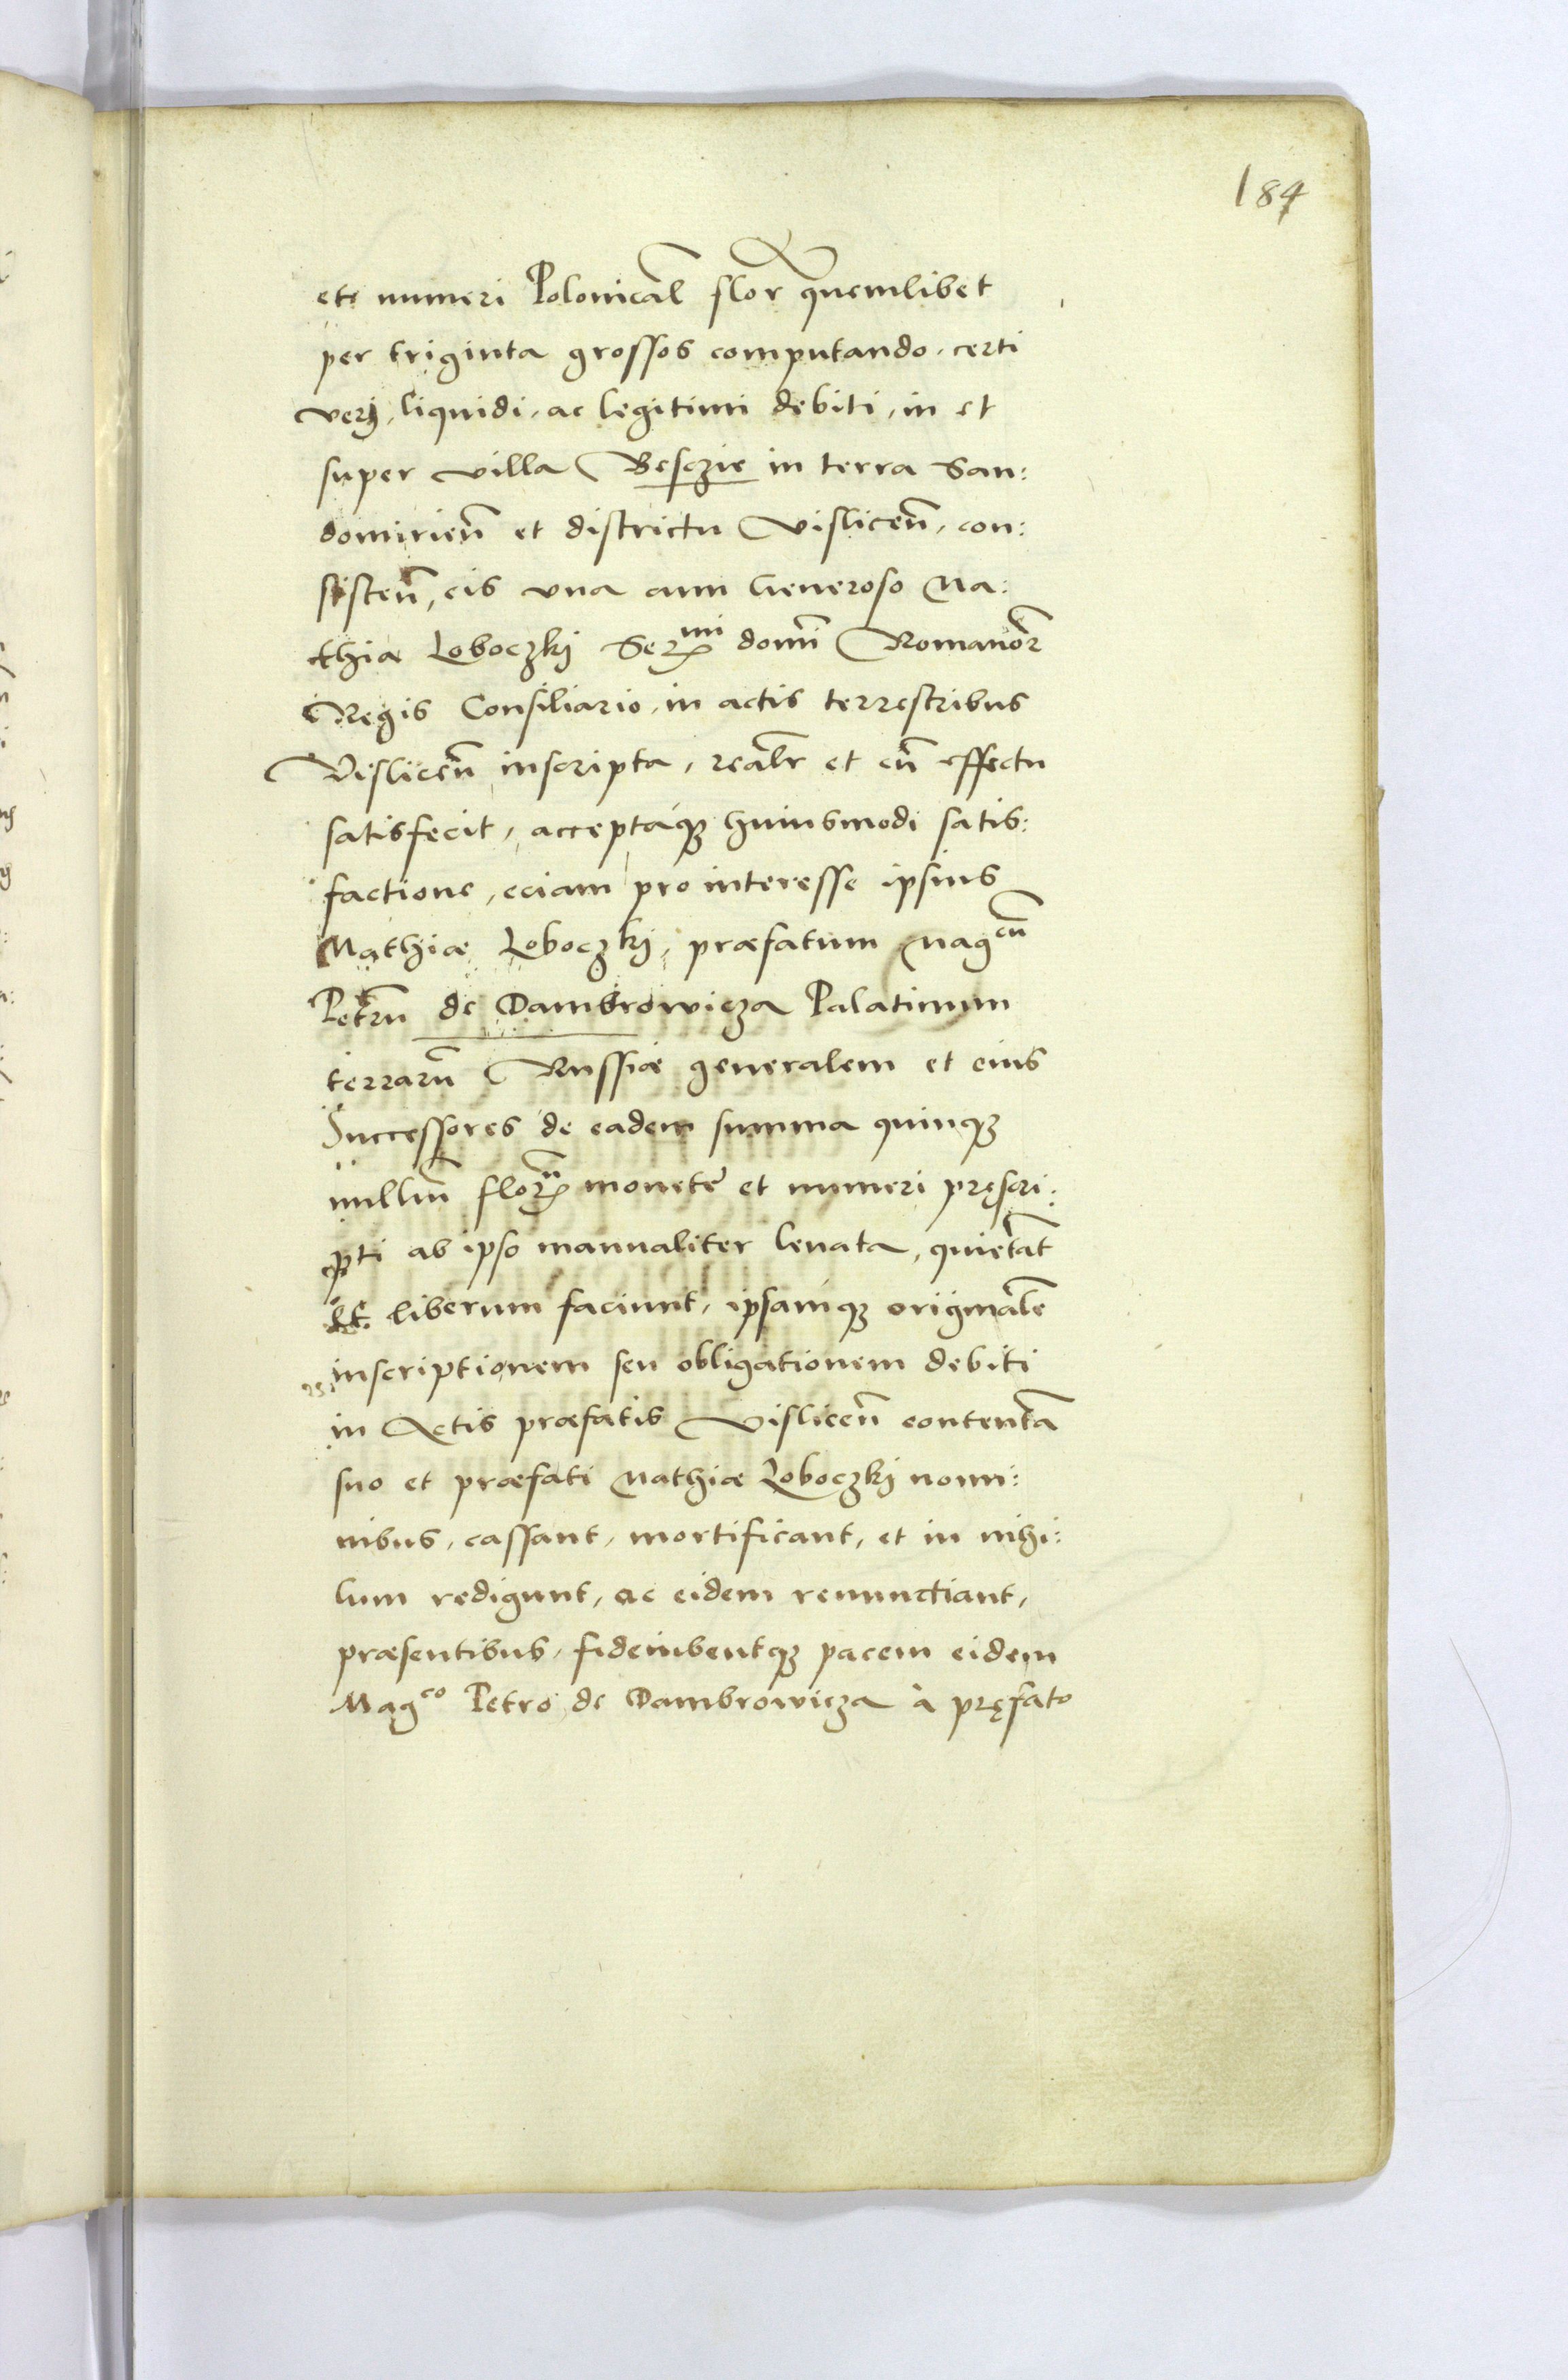 184
et numeri Polonical̃ flor̃ quemlibet
per triginta grossos computando, certi
verj, liquidi, ac legitimi debiti, in et
super villa Besczie in terra San:
domirieñ et districtu Visliceñ, con:
sisteñ, eis vna cum Generoso Ma:
thia Loboczkj Ser^mi domi Romanor̃
Regis Consiliario, in actis terrestribus
Visliceñ inscripta, realr̃ et cũ effectu
satisfecit, acceptaq3 huiusmodi satis:
factione, eciam pro interesse ipsius
Mathiæ Loboczkj, præfatum Mag^cũ
Petrũ de Dambrowicza Palatinum
terrarũ Russiæ generalem et eius
Successores de eadem summa quinq3
milliũ flor^ũ monete et numeri pręscri:
pti ab ipso manualiter leuata, quietãt
Et liberum faciunt, ipsamq3 originalẽ
inscriptionem seu obligationem debiti
in Actis præfatis Visliceñ contentã
suo et præfati Mathiæ Loboczkj nomi:
nibus, cassant, mortificant, et in nihi:
lum redigunt, ac eidem renunctiant,
præsentibus, fideiubentq3 pacem eidem
Mag^co Petro de Dambrowicza à pręfato